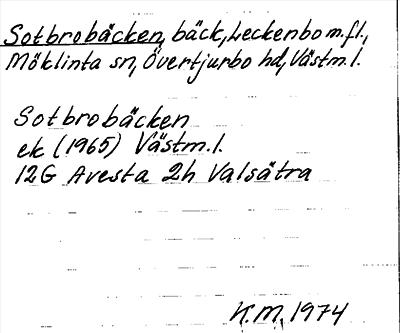 Sotbrobäcken, bäck, Leckenbo m.fl.,
Möklinta sn, Övertjurbo hd, Västm.l.
Sotbrobäcken
ek (1965) Västm.l.
12G Avesta 2h Valsätra
K.M. 1974